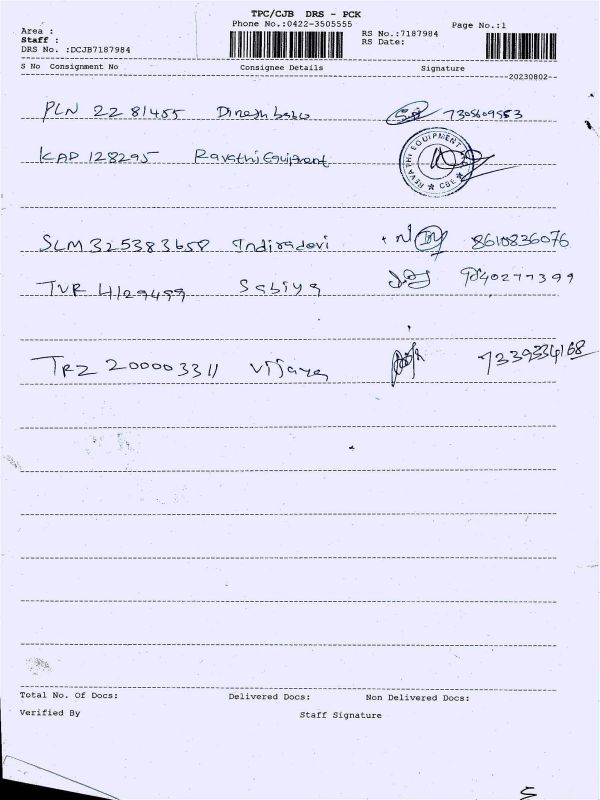 TPC/CJB DRS - PCK
Phone No.:0422-3505555
Page No.:1
Area :
Staff :
DRS No. :DCJB7187984
RS No.:7187984
RS Date:
S No Consignment No Consignee Details Signature
20230802
PLN 2281455 Dineshbabu 7305609553
KAP 128295 Ravathi Equipment
REVATHI EQUIPMENT CBE
SLM 325383658 Indiradevi 8610836076
TVR 41129499 Sabiya 9040277399
TRZ 200003311 Vijaya 7339334168
Total No. Of Docs: Delivered Docs: Non Delivered Docs:
Verified By Staff Signature
5